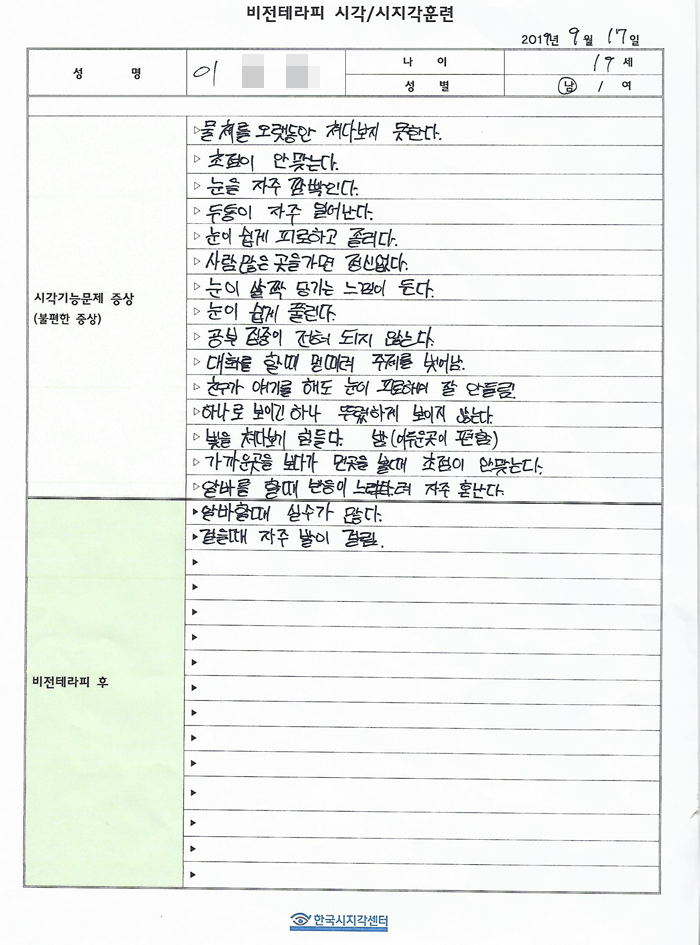 비전테라피 시각/시지각훈련
2019년 9월 17일
성 명 이
나 이 19 세
성 별 남 / 여
▷물체를 오랫동안 쳐다보지 못한다.
▷초점이 안맞는다.
▷눈을 자주 깜빡인다.
▷두통이 자주 일어난다.
▷눈이 쉽게 피로하고 졸리다.
▷사람많은 곳을가면 정신없다.
▷눈이 살짝 당기는 느낌이 든다.
▷눈이 쉽게 풀린다.
▷공부 집중이 전혀 되지 않는다.
▷대화를 할때 멍때려 주제를 벗어남.
▷친구가 얘기를 해도 눈이 피로하여 잘 안들림.
▷하나로 보이긴하나 뚜렷하지 보이지 않는다.
▷빛을 쳐다보기 힘들다. 밤(어두운곳이 편함)
▷가까운곳을 보다가 먼곳을 볼때 초점이 안맞는다.
▷알바를 할때 반응이 느려 자주 혼난다.
시각기능문제 증상
(불편한 증상)
▶알바할때 실수가 많다.
▶걸을때 자주 발이 걸림.
비전테라피 후
한국시지각센터